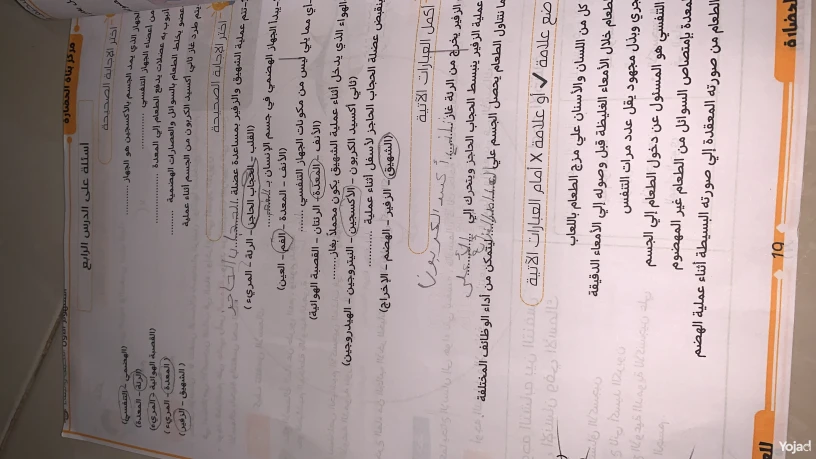 مركز بناة الحضارة
اسئلة على الدرس الرابع
اختر الإجابة الصحيحة
الجهاز الذي يمد الجسم بالأكسجين هو الجهاز ............ (الهضمي - التنفسي)
من أعضاء الجهاز التنفسي ............ (الرئة - المعدة)
أنبوب به عضلات يدفع الطعام إلي المعدة ............ (القصبة الهوائية - المريء)
عضو يخلط الطعام بالسوائل والعصارات الهضمية ............ (المعدة - المريء)
يتم طرد غاز ثاني أكسيد الكربون من الجسم أثناء عملية (الشهيق - الزفير)
اختر الإجابة الصحيحة
تتم عملية الشهيق والزفير بمساعدة عضلة الحجاب الحاجز
(القلب - الحجاب الحاجز - الرئة - المريء)
يبدأ الجهاز الهضمي في جسم الإنسان بـ الفم
(الأنف - المعدة - الفم - العين)
أي مما يلي ليس من مكونات الجهاز التنفسي ............
(الأنف - المعدة - الرئتان - القصبة الهوائية)
الهواء الذي يدخل أثناء عملية الشهيق يكون محملاً بغاز ............
(ثاني أكسيد الكربون - الأكسجين - النيتروجين - الهيدروجين)
ينقبض عضلة الحجاب الحاجز لأسفل أثناء عملية ............
(الشهيق - الزفير - الهضم - الإخراج)
أكمل العبارات الآتية
الزفير يخرج من الرئة غاز ثاني أكسيد الكربون
عملية الزفير ينبسط الحجاب الحاجز ويتحرك إلي الأعلى
ما نتناول الطعام يحصل الجسم علي ليتمكن من أداء الوظائف المختلفة
ضع علامة ✓ أو علامة X أمام العبارات الآتية
طعام خلال الأمعاء الغليظة قبل وصوله إلي الأمعاء الدقيقة
كل من اللسان والأسنان علي مزج الطعام باللعاب
جري وبذل مجهود يقل عدد مرات التنفس
التنفسي هو المسئول عن دخول الطعام إلي الجسم
لمعدة بإمتصاص السوائل من الطعام غير المهضوم
الطعام من صورته المعقدة إلي صورته البسيطة أثناء عملية الهضم
19
الحضارة
Yojad